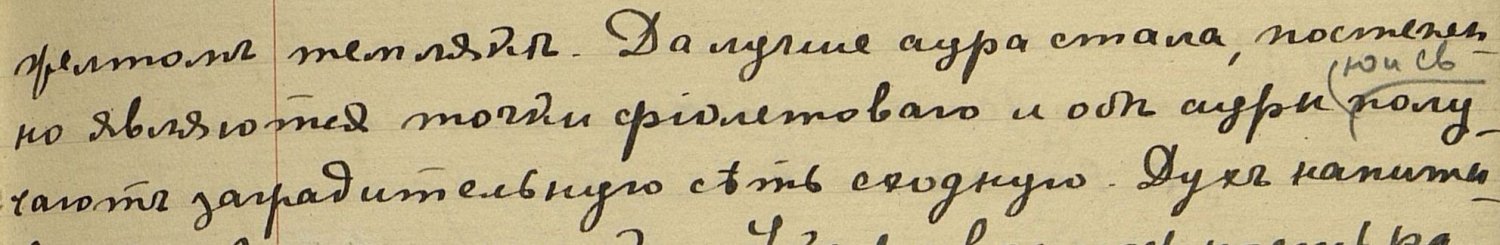 желтомъ темлякѣ. Да лучше аура стала, постепен-
(юи сь
но являются точки фіолетоваго и обѣ ауры полу-
чаютъ заградительную сѣть сходную. Духъ напиты-